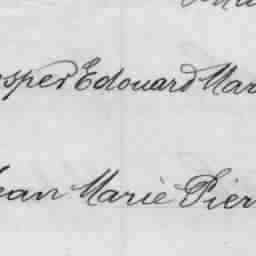 osper Edouard Mar
Jean Marie Pier